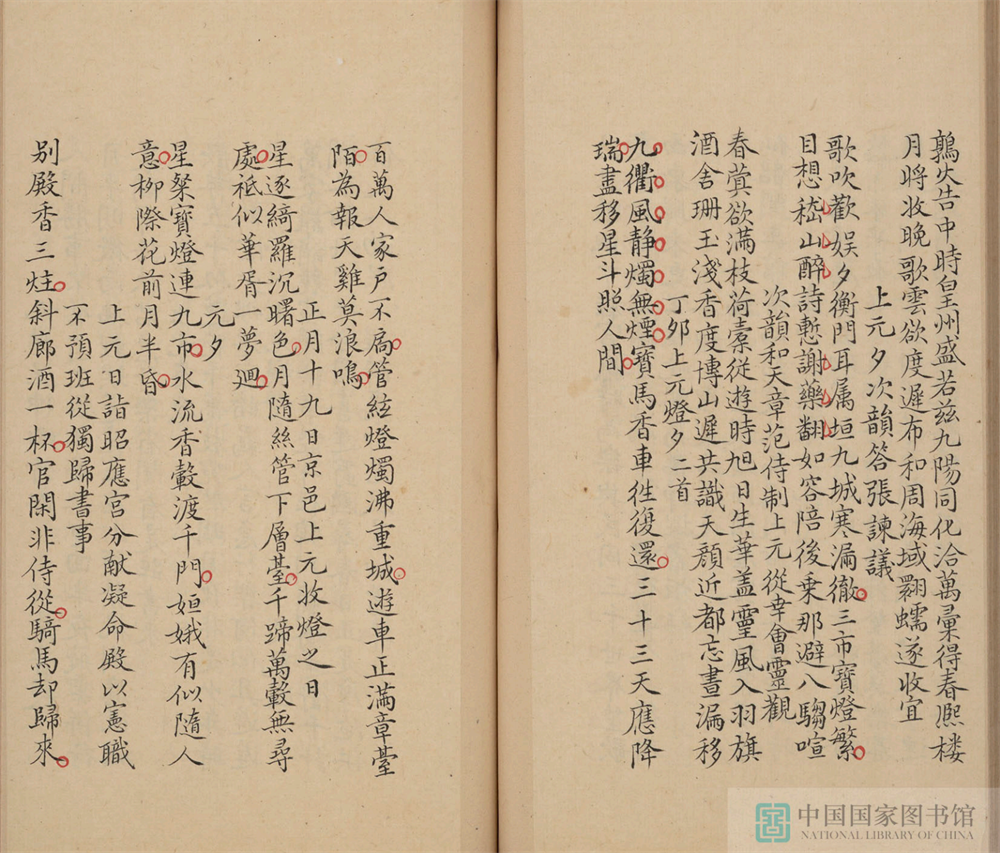 鶉火告中時皇州盛若茲九陽同化洽萬彙得春熈樓
月將收晚歌雲欲度遲布和周海域翾蠕遂收宜
上元夕次韻答張諫議
歌吹歡娱夕衡門耳属垣九城寒漏徹三市寶燈繁
目想嵇山醉詩慙謝藥翻如容陪後乗那避八騶喧
次韻和天章范侍制上元從幸會靈觀
春蓂欲滿枝荷槖従遊時旭日生華盖靈風入羽旗
酒舎珊玉淺香度博山遲共識天顔近都忘晝漏移
丁夘上元燈夕二首
九衢風静燭無煙寶馬香車徃復還三十三天應降
瑞盡移星斗照人間
百萬人家戸不扃管絃燈燭沸重城遊車正滿章臺
陌為報天雞莫浪鳴
正月十九日京邑上元收燈之日
星逐綺羅沉曙色月隨絲管下層臺千蹄萬轂無尋
處祗似華胥一夢廻
元夕
星粲寶燈連九市水流香轂渡千門姮娥有似隨人
意柳際花前月半昏
上元日詣昭應宮分献凝命殿以憲職
不預班從獨歸書事
别殿香三炷斜廊酒一杯官閑非侍從騎馬却歸來
中国国家图书馆
NATIONAL LIBRARY OF CHINA